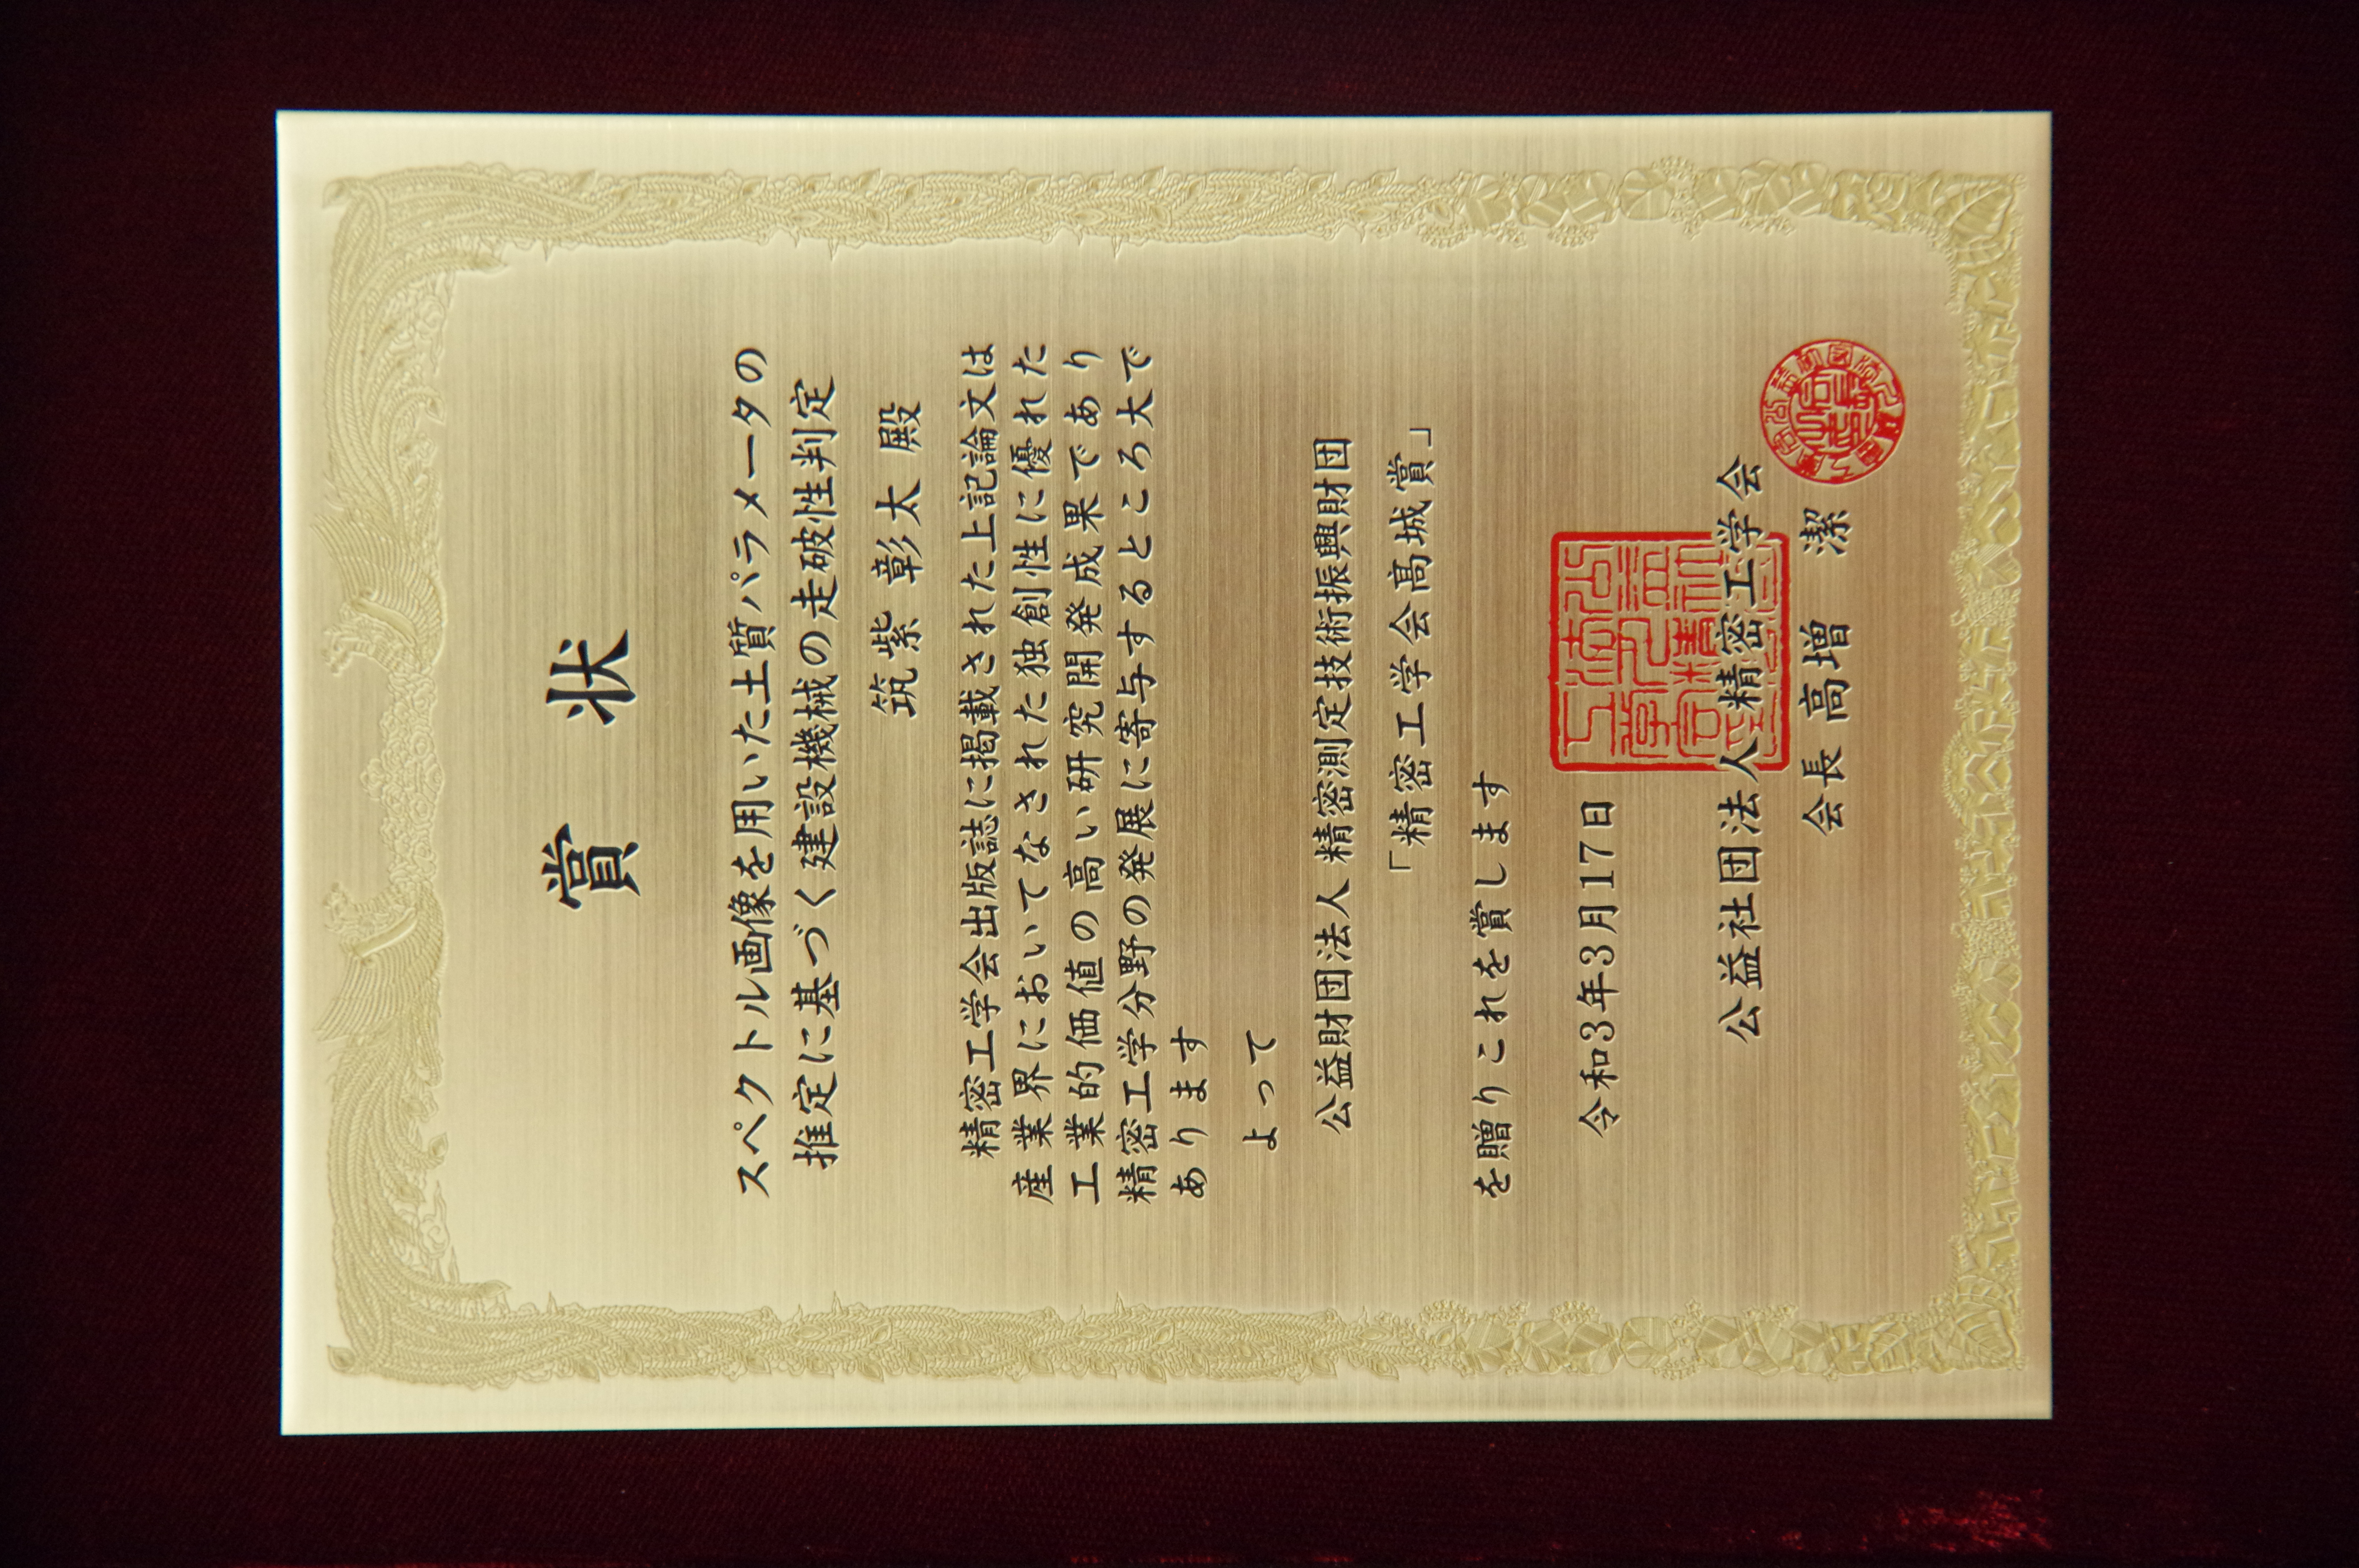 賞状
スペクトル画像を用いた土質パラメータの
推定に基づく建設機械の走破性判定
筑紫 彰太 殿
精密工学会出版誌に掲載された上記論文は
産業界においてなされた独創性に優れた
工業的価値の高い研究開発成果であり
精密工学分野の発展に寄与するところ大で
あります
よって
公益財団法人 精密測定技術振興財団
「精密工学会髙城賞」
を贈りこれを賞します
令和3年3月17日
公益社団法人精密工学会
会長 高増 潔